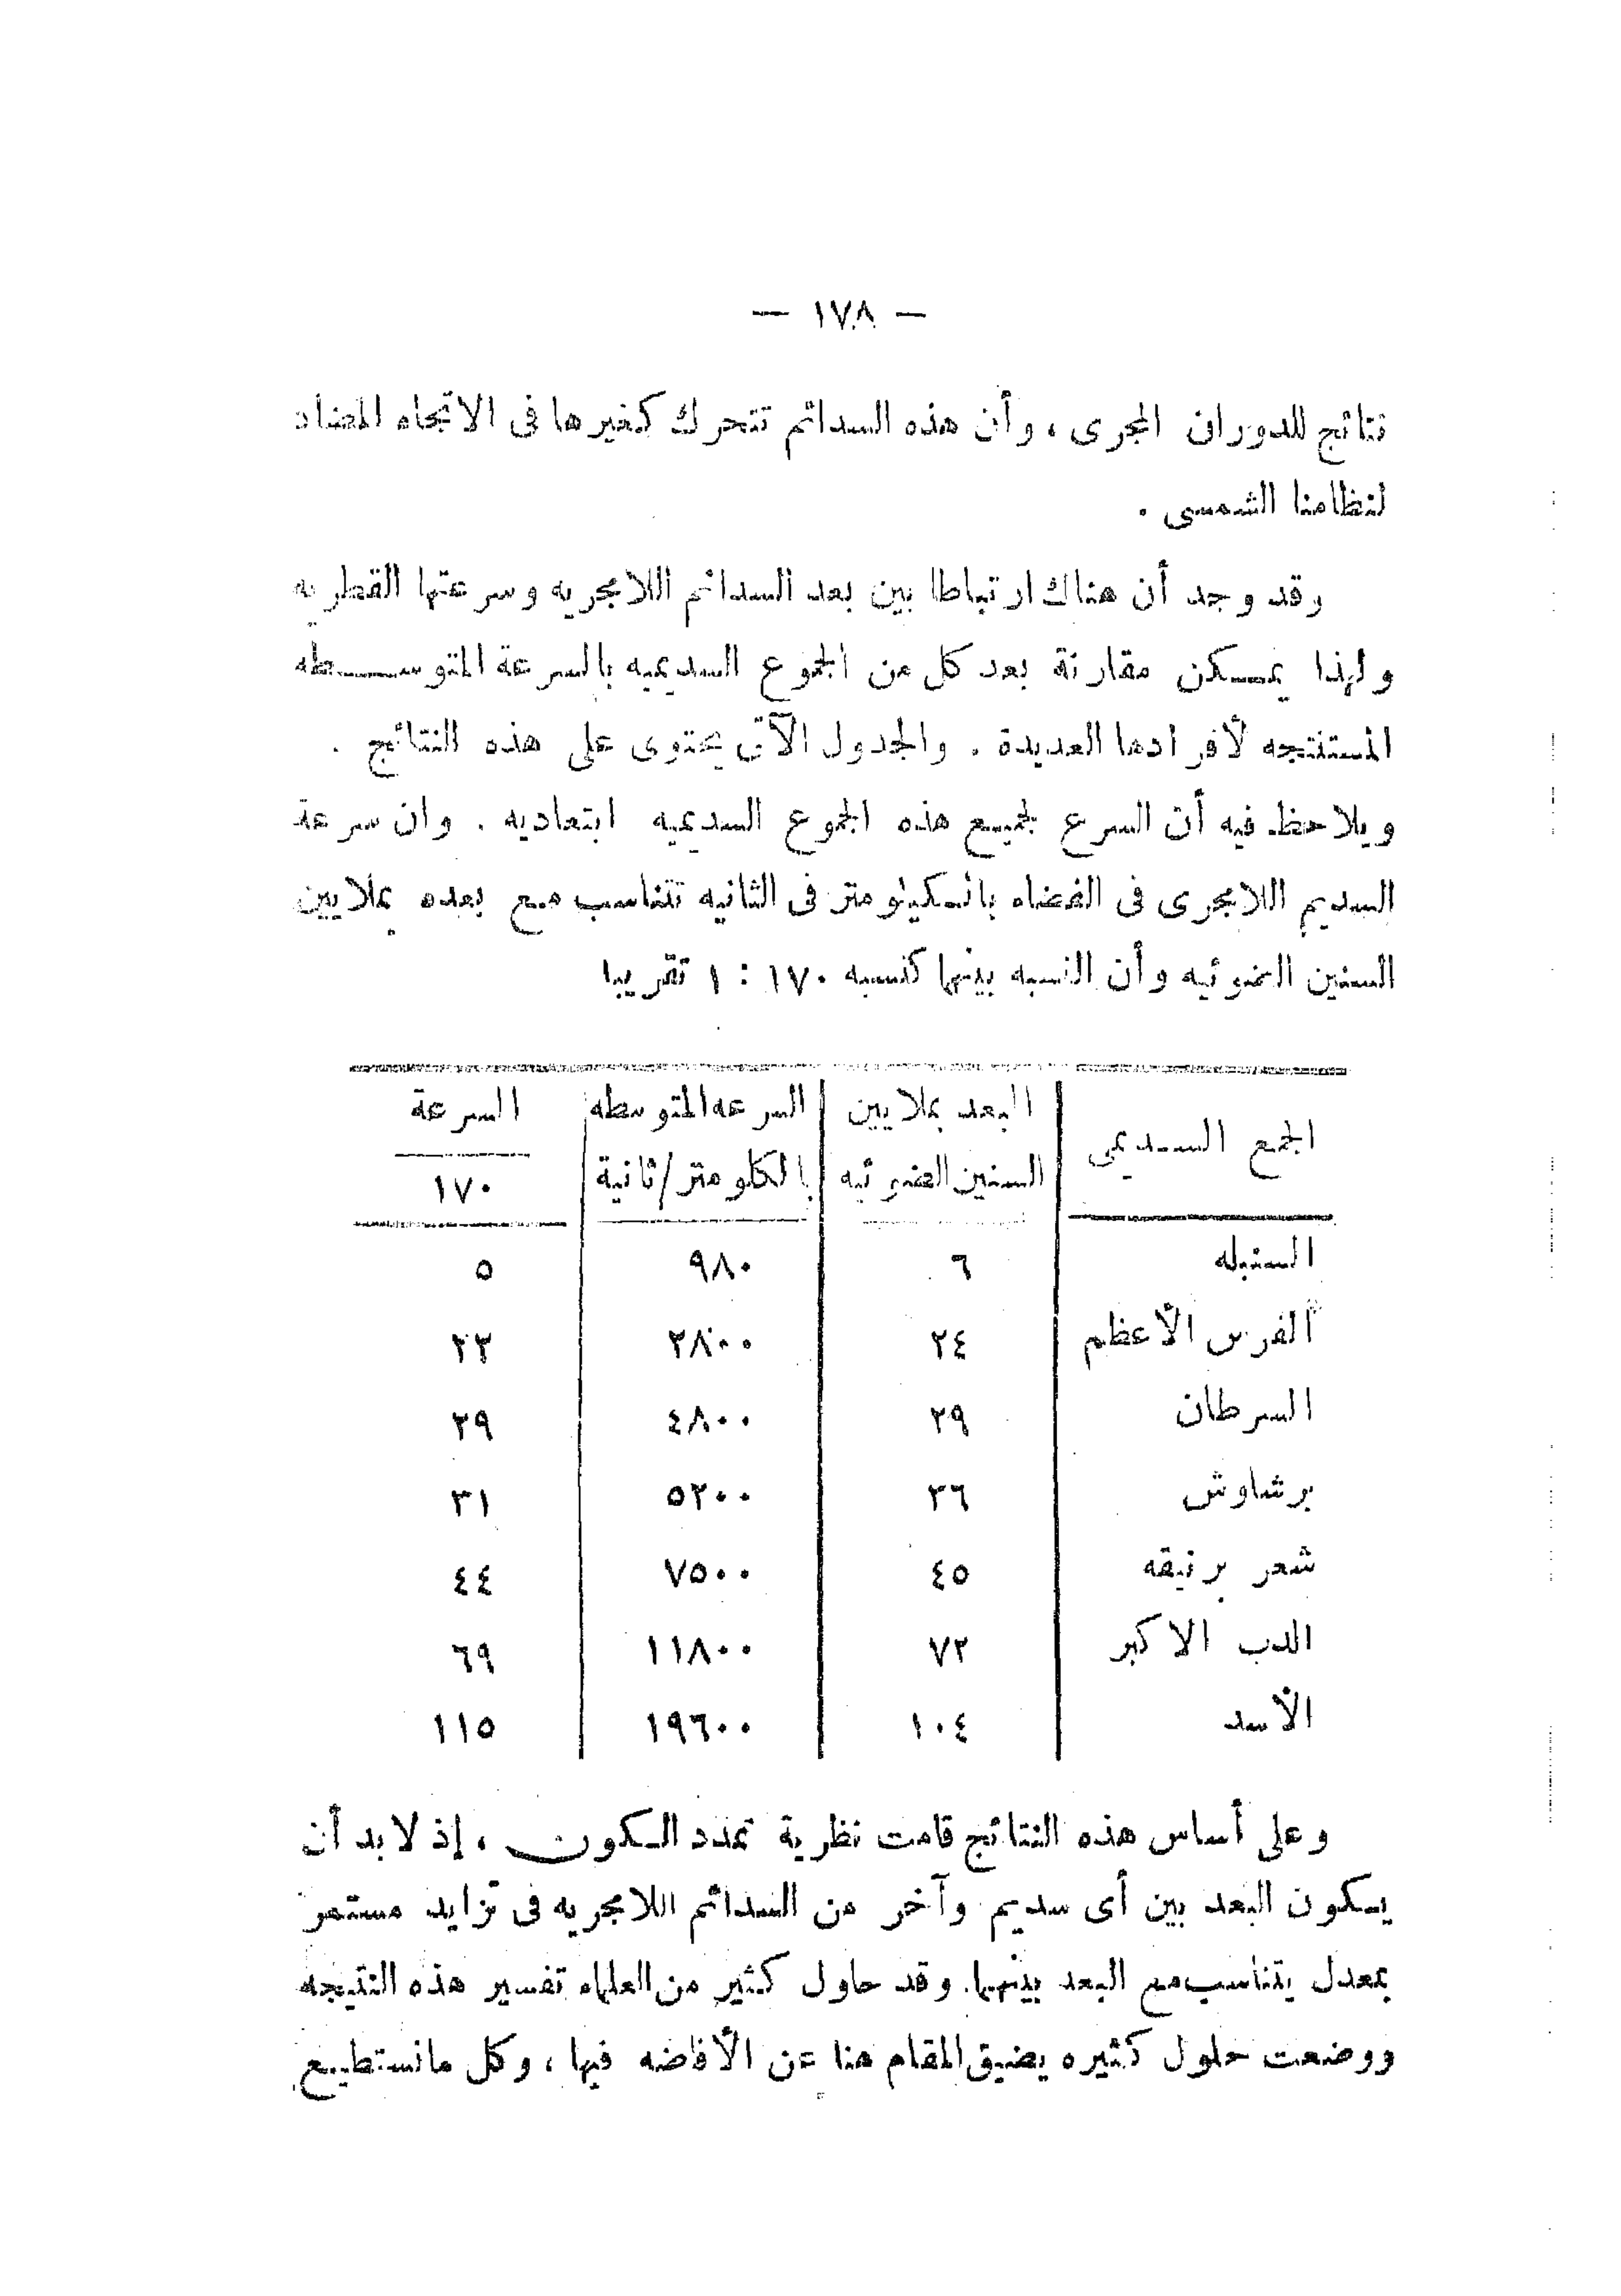 — ١٧٨ —
نتائج للدوران المجرى ، وأن هذه السدائم تتحرك كغيرها فى الاتجاه المضاد
لنظامنا الشمسى .
وقد وجد أن هناك ارتباطا بين بعد السدائم اللامجريه وسرعتها القطريه
ولهذا يمكن مقارنة بعد كل من الجموع السديميه بالسرعة المتوسطه
المستنتجه لأفرادها العديدة . والجدول الآتى يحتوى على هذه النتائج .
ويلاحظ فيه أن السرع لجميع هذه الجموع السديميه ابتعاديه . وان سرعة
السديم اللامجرى فى الفضاء بالكيلومتر فى الثانيه تتناسب مع بعده بملايين
السنين الضوئيه وأن النسبه بينهما كنسبه ١٧٠ : ١ تقريبا
الجمع السديمى | البعد بملايين السنين الضوئيه | السرعه المتوسطه بالكلومتر/ثانية | السرعة / ١٧٠
السنبله | ٦ | ٩٨٠ | ٥
الفرس الأعظم | ٢٤ | ٣٨٠٠ | ٢٣
السرطان | ٢٩ | ٤٨٠٠ | ٢٩
برشاوش | ٣٦ | ٥٢٠٠ | ٣١
شعر برنيقه | ٤٥ | ٧٥٠٠ | ٤٤
الدب الاكبر | ٧٢ | ١١٨٠٠ | ٦٩
الأسد | ١٠٤ | ١٩٦٠٠ | ١١٥
وعلى أساس هذه النتائج قامت نظرية تمدد الكون ، إذ لابد أن
يكون البعد بين أى سديم وآخر من السدائم اللامجريه فى تزايد مستمر
بمعدل يتناسب مع البعد بينهما. وقد حاول كثير من العلماء تفسير هذه النتيجه
ووضعت حلول كثيره يضيق المقام هنا عن الأفاضه فيها ، وكل مانستطيع